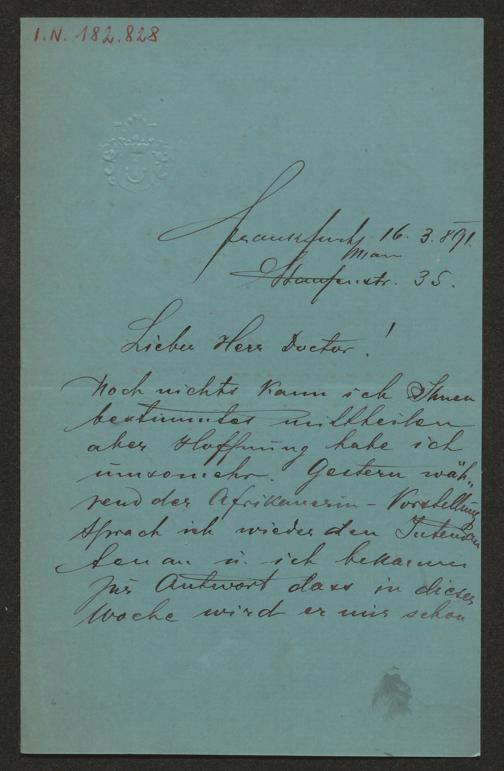 I.N. 182.828
Frankfurt 16. 3. 891.
Main
Staufenstr. 35.
Lieber Herr Doctor!
Noch nichts kann ich Ihnen
bestimmtes mittheilen
aber Hoffnung habe ich
umsomehr. Gestern wäh„
rend der Afrikanerin - Vorstellung
sprach ich wieder den Intendan
ten an u. ich bekamm
zur Antwort dass in dieser
Woche wird er mir schon